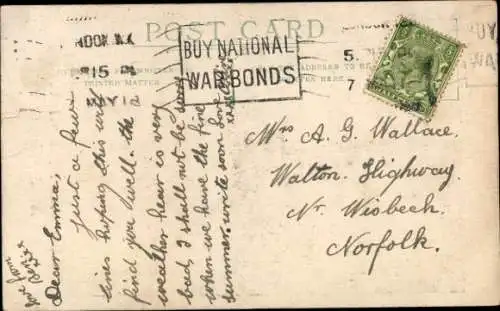 POST CARD
LONDON. W.
5.15 PM
MAY 12
BUY NATIONAL
WAR BONDS
LONDON
5.
7
BUY
WAR
PRINTED MATTER
ADDRESS TO BE
HERE.
Dear Emma,
Just a few
lines hoping this will
find you well. the
weather hear is very
bad, I shall not be sorry
when we have the fine
summer. write soon love
love from
Mrs A. G. Wallace.
Walton. Highway.
Nr. Wisbech.
Norfolk.